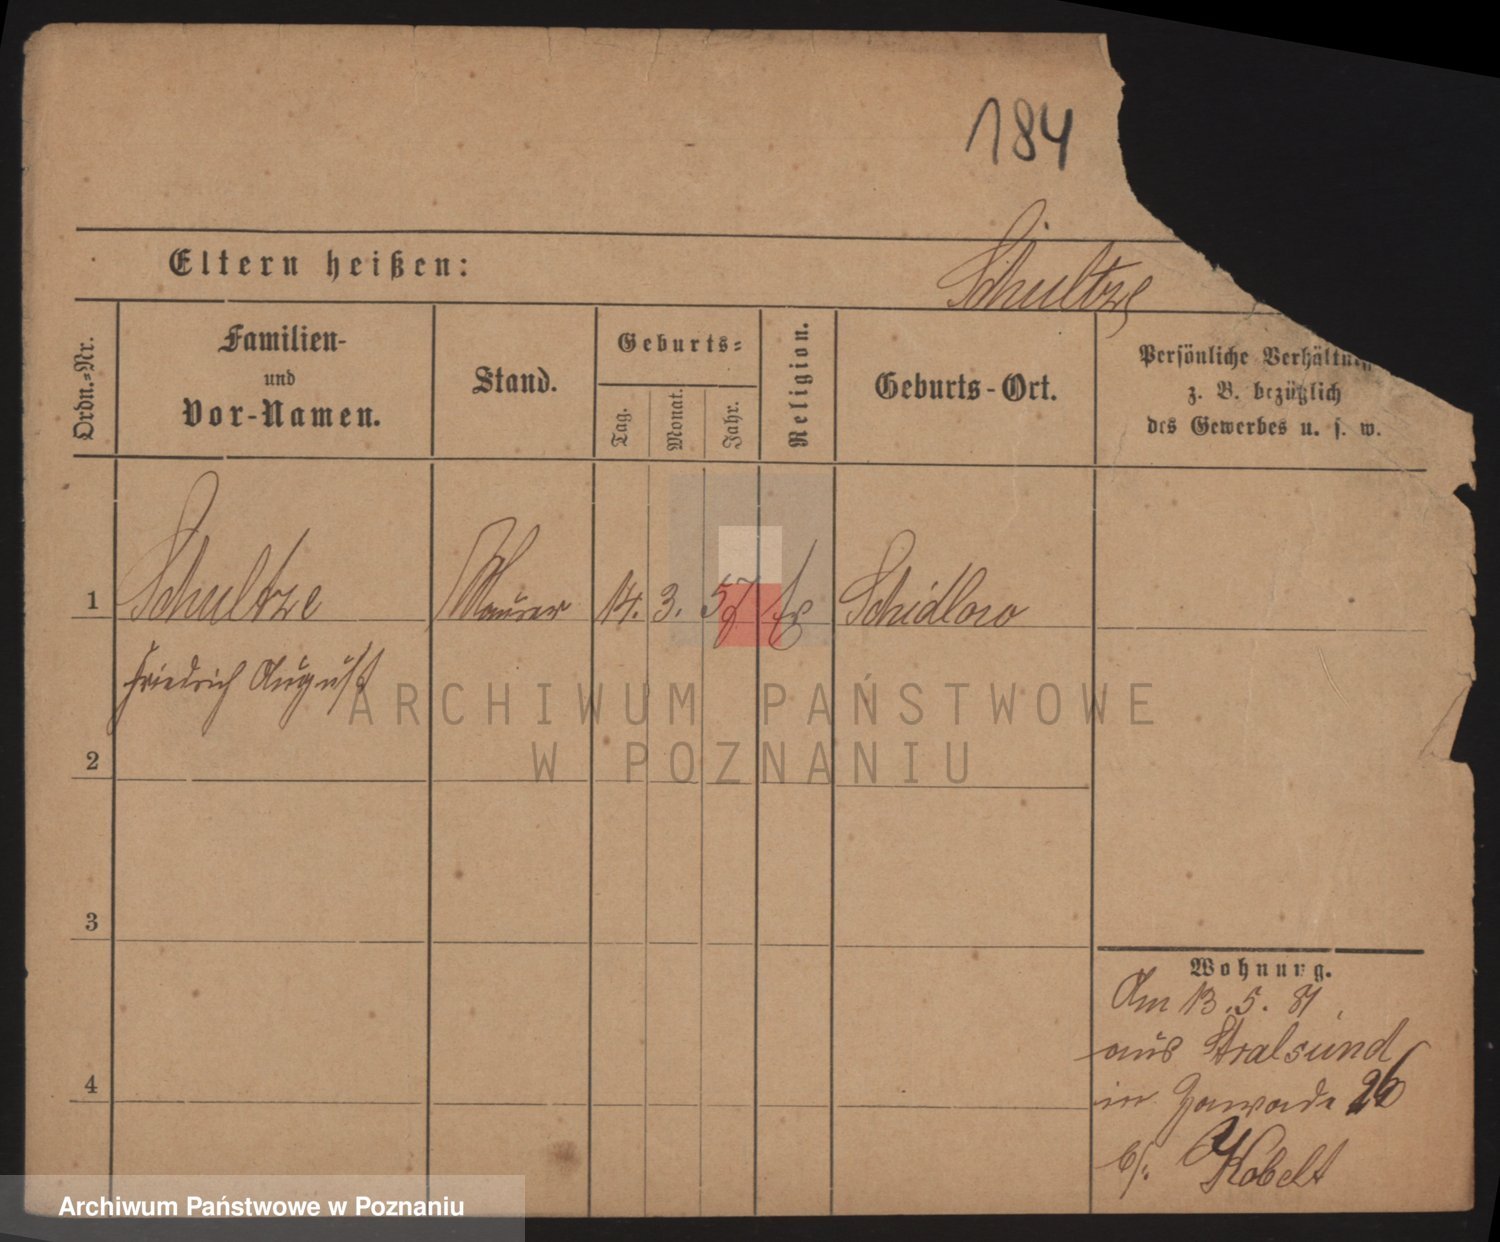 184
Eltern heißen:
Schultze
Ordn.-Nr.
Familien-
und
Vor-Namen.
Stand.
Geburts-
Tag.
Monat.
Jahr.
Religion.
Geburts-Ort.
Persönliche Verhältn
z. B. bezüglich
des Gewerbes u. s. w.
1
Schultze
Maurer
14.
3.
57
Schidlow
Friedrich August
ARCHIWUM PAŃSTWOWE
W POZNANIU
2
3
Wohnung.
Am 13.5.81
aus Stralsund
in Zawade 26
b/.
Köbelt
4
Archiwum Państwowe w Poznaniu